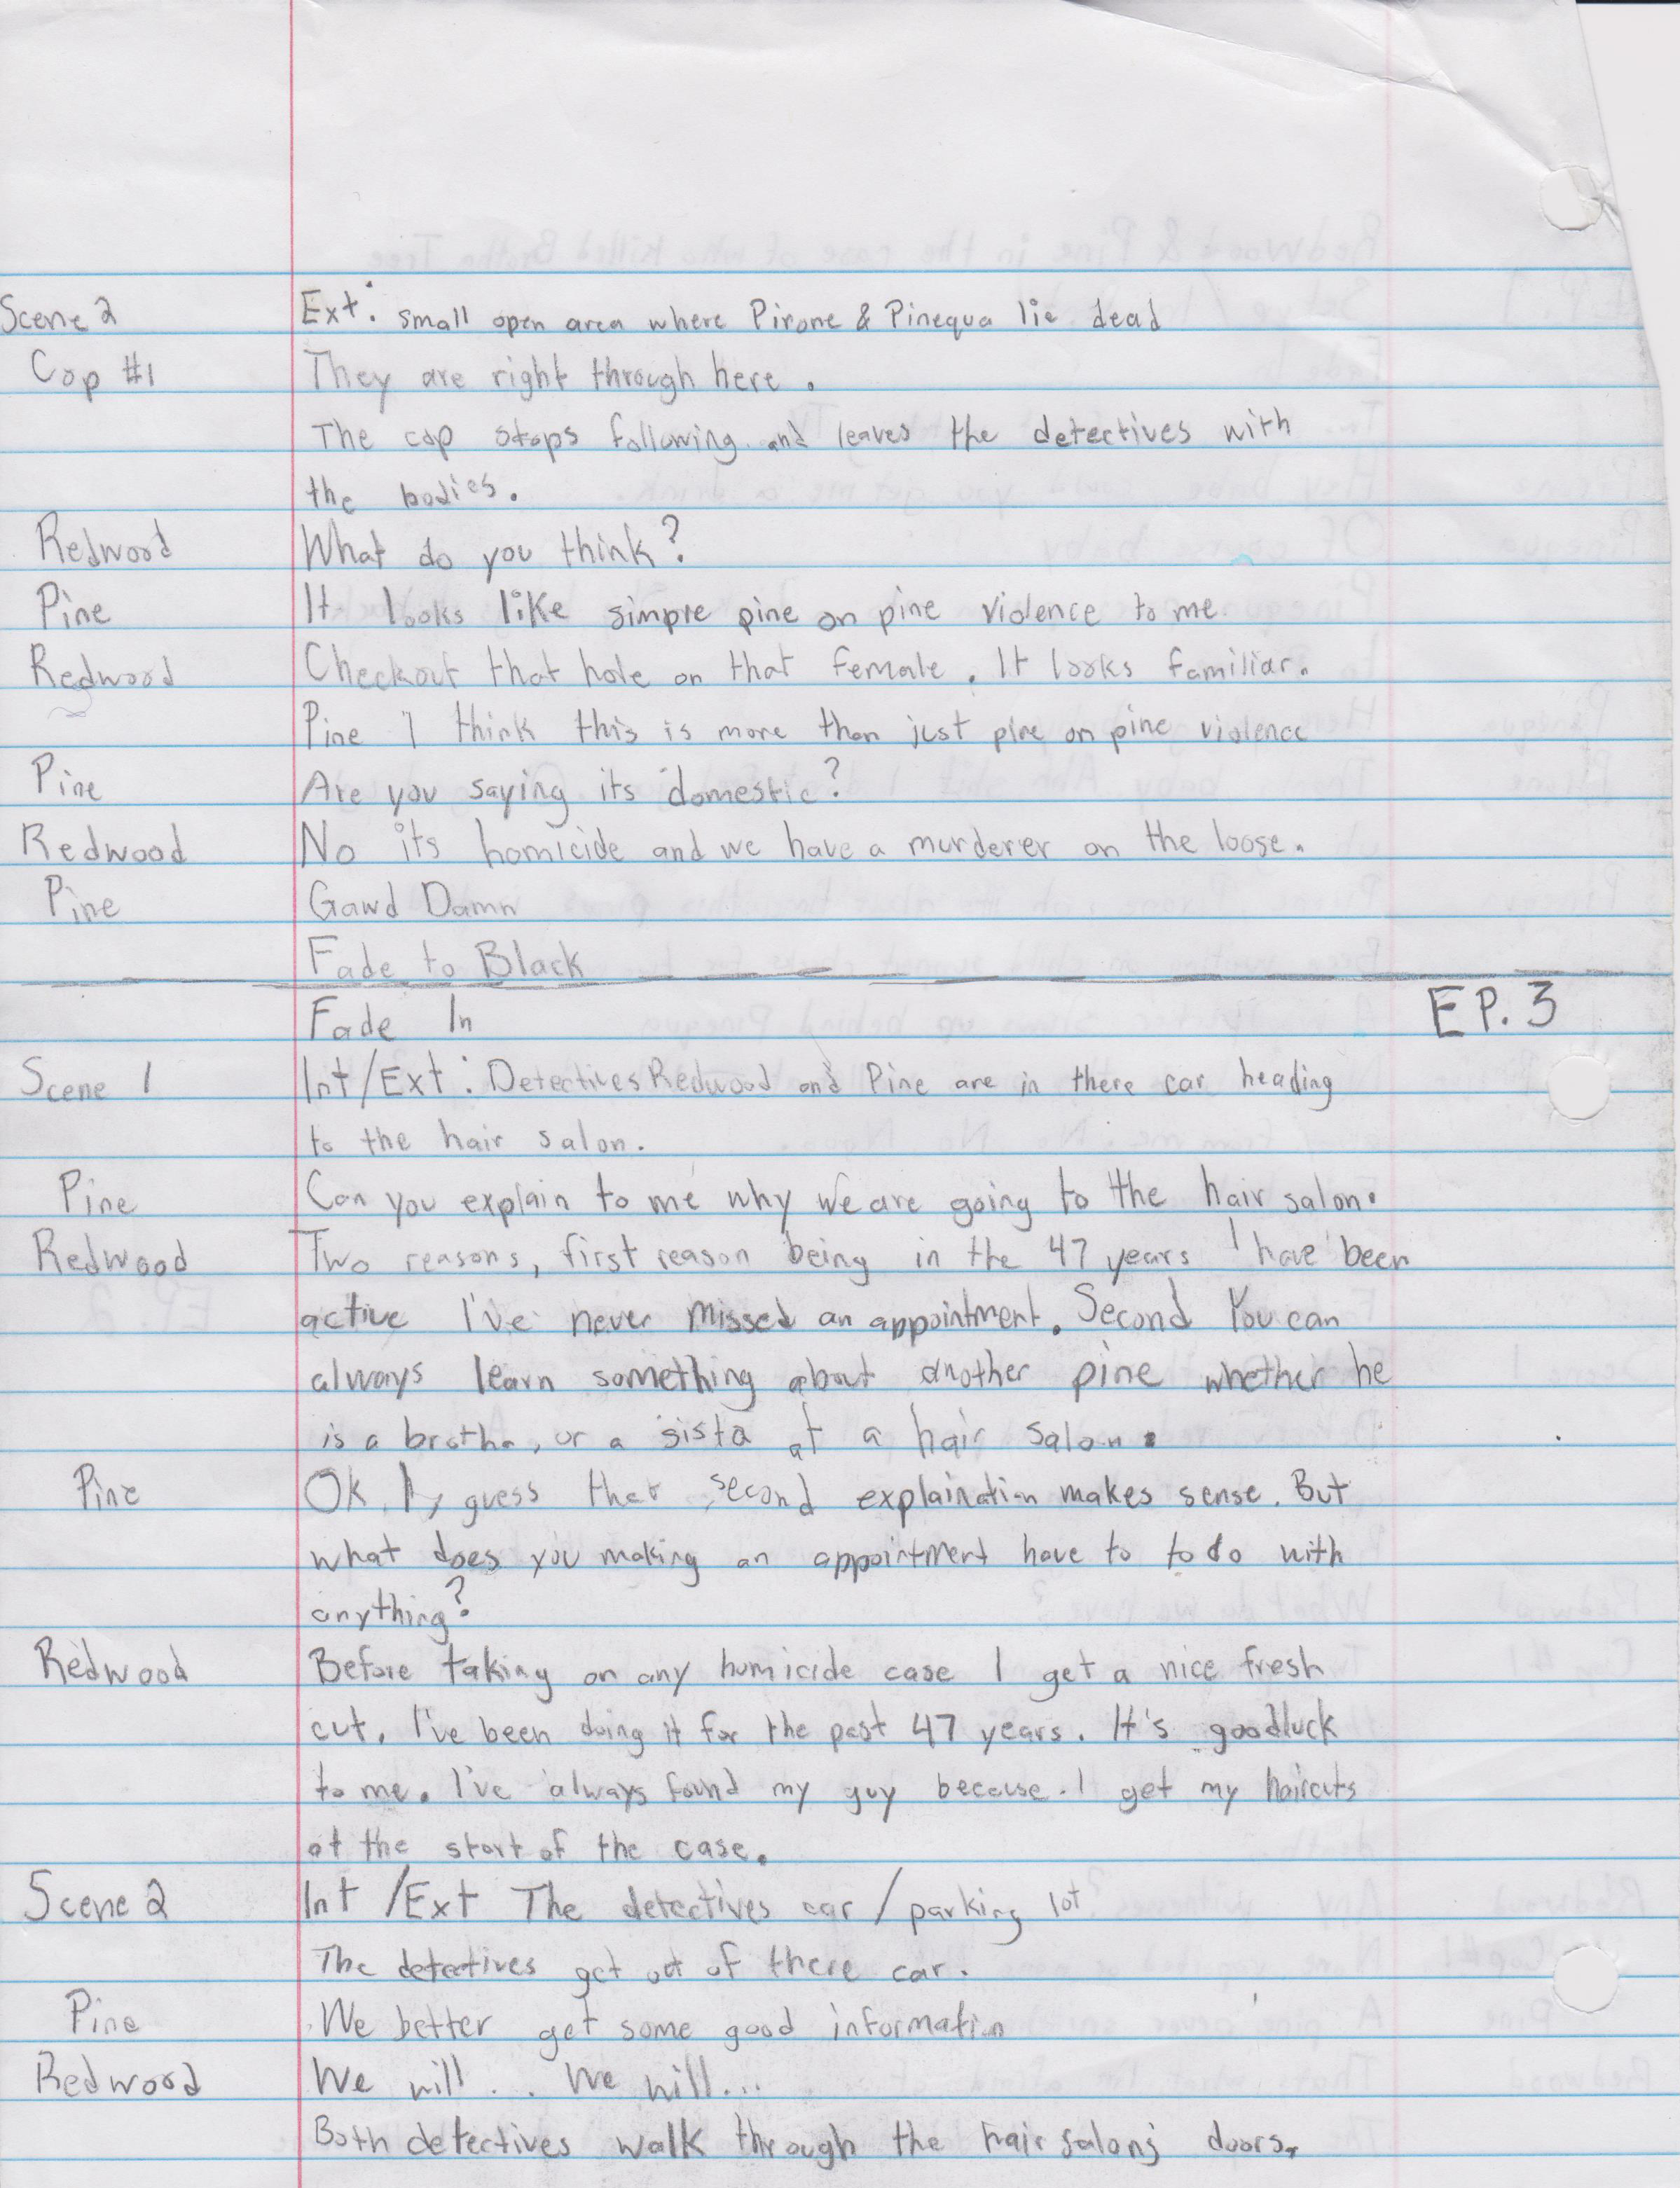 Scene 2 Ext: small open area where Pirone & Pinequa lie dead
Cop #1 They are right through here.
The cop stops following and leaves the detectives with
the bodies.
Redwood What do you think?
Pine It looks like simple pine on pine violence to me
Redwood Checkout that hole on that female. It looks familiar.
Pine I think this is more than just pine on pine violence
Pine Are you saying its domestic?
Redwood No its homicide and we have a murderer on the loose.
Pine Gawd Damn
Fade to Black
EP. 3
Fade In
Scene 1 Int/Ext: Detectives Redwood and Pine are in there car heading
to the hair salon.
Pine Can you explain to me why we are going to the hair salon.
Redwood Two reasons, first reason being in the 47 years I have been
active I've never missed an appointment. Second You can
always learn something about another pine whether he
is a brotha, or a sista at a hair salon.
Pine Ok, I guess that second explaination makes sense. But
what does you making an appointment have to to do with
anything?
Redwood Before taking on any homicide case I get a nice fresh
cut. I've been doing it for the past 47 years. It's goodluck
to me. I've always found my guy because I get my haircuts
at the start of the case.
Scene 2 Int /Ext The detectives car / parking lot
The detectives get out of there car.
Pine We better get some good information
Redwood We will... We will...
Both detectives walk through the hair salons doors.